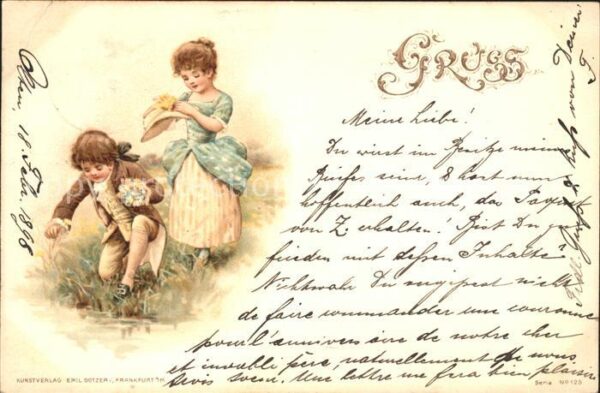 GRUSS
Olten, 18. Febr. 1898
Meine Liebe!
Du wirst im Besitze meines
Briefes sein, & hast nun
hoffentlich auch, das Paquet
von Z. erhalten! Bist Du zu-
frieden mit dessen Inhalte?
Nichtwahr Du vergissest nicht
de faire commander une couronne
pour l'anniversaire de notre cher
et inoubli père, naturellement de nous
soeurs, Une lettre me fera bien plaisir
Gruss & Kuss von Deiner
KUNSTVERLAG EMIL DOTZERT, FRANKFURT a/M.
Serie No 125